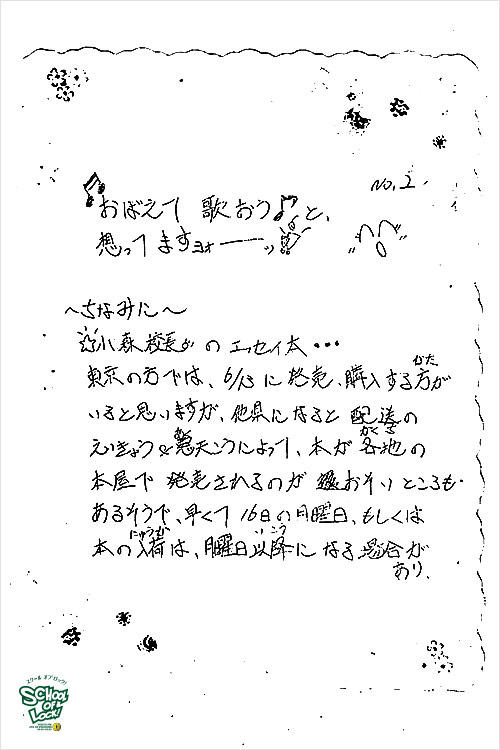 No.2.
おばえて 歌おう♪と、
想ってますョォーーッ
〜ちなみに〜
小森校長 の エッセイ本・・・
東京の方では、6/13に発売、購入する方がかた
いると思いますが、他県になると 配送の
えいきょう&悪天こうによって、本が 各地のかくち
本屋で 発売されるのが おそいところも
あるそうで、早くて 16日の月曜日、もしくは
本の入荷にゅうかは、月曜日以降いこうになる場合が
あり、
スクール オブ ロック!
SCHOOL
OF
LOCK!